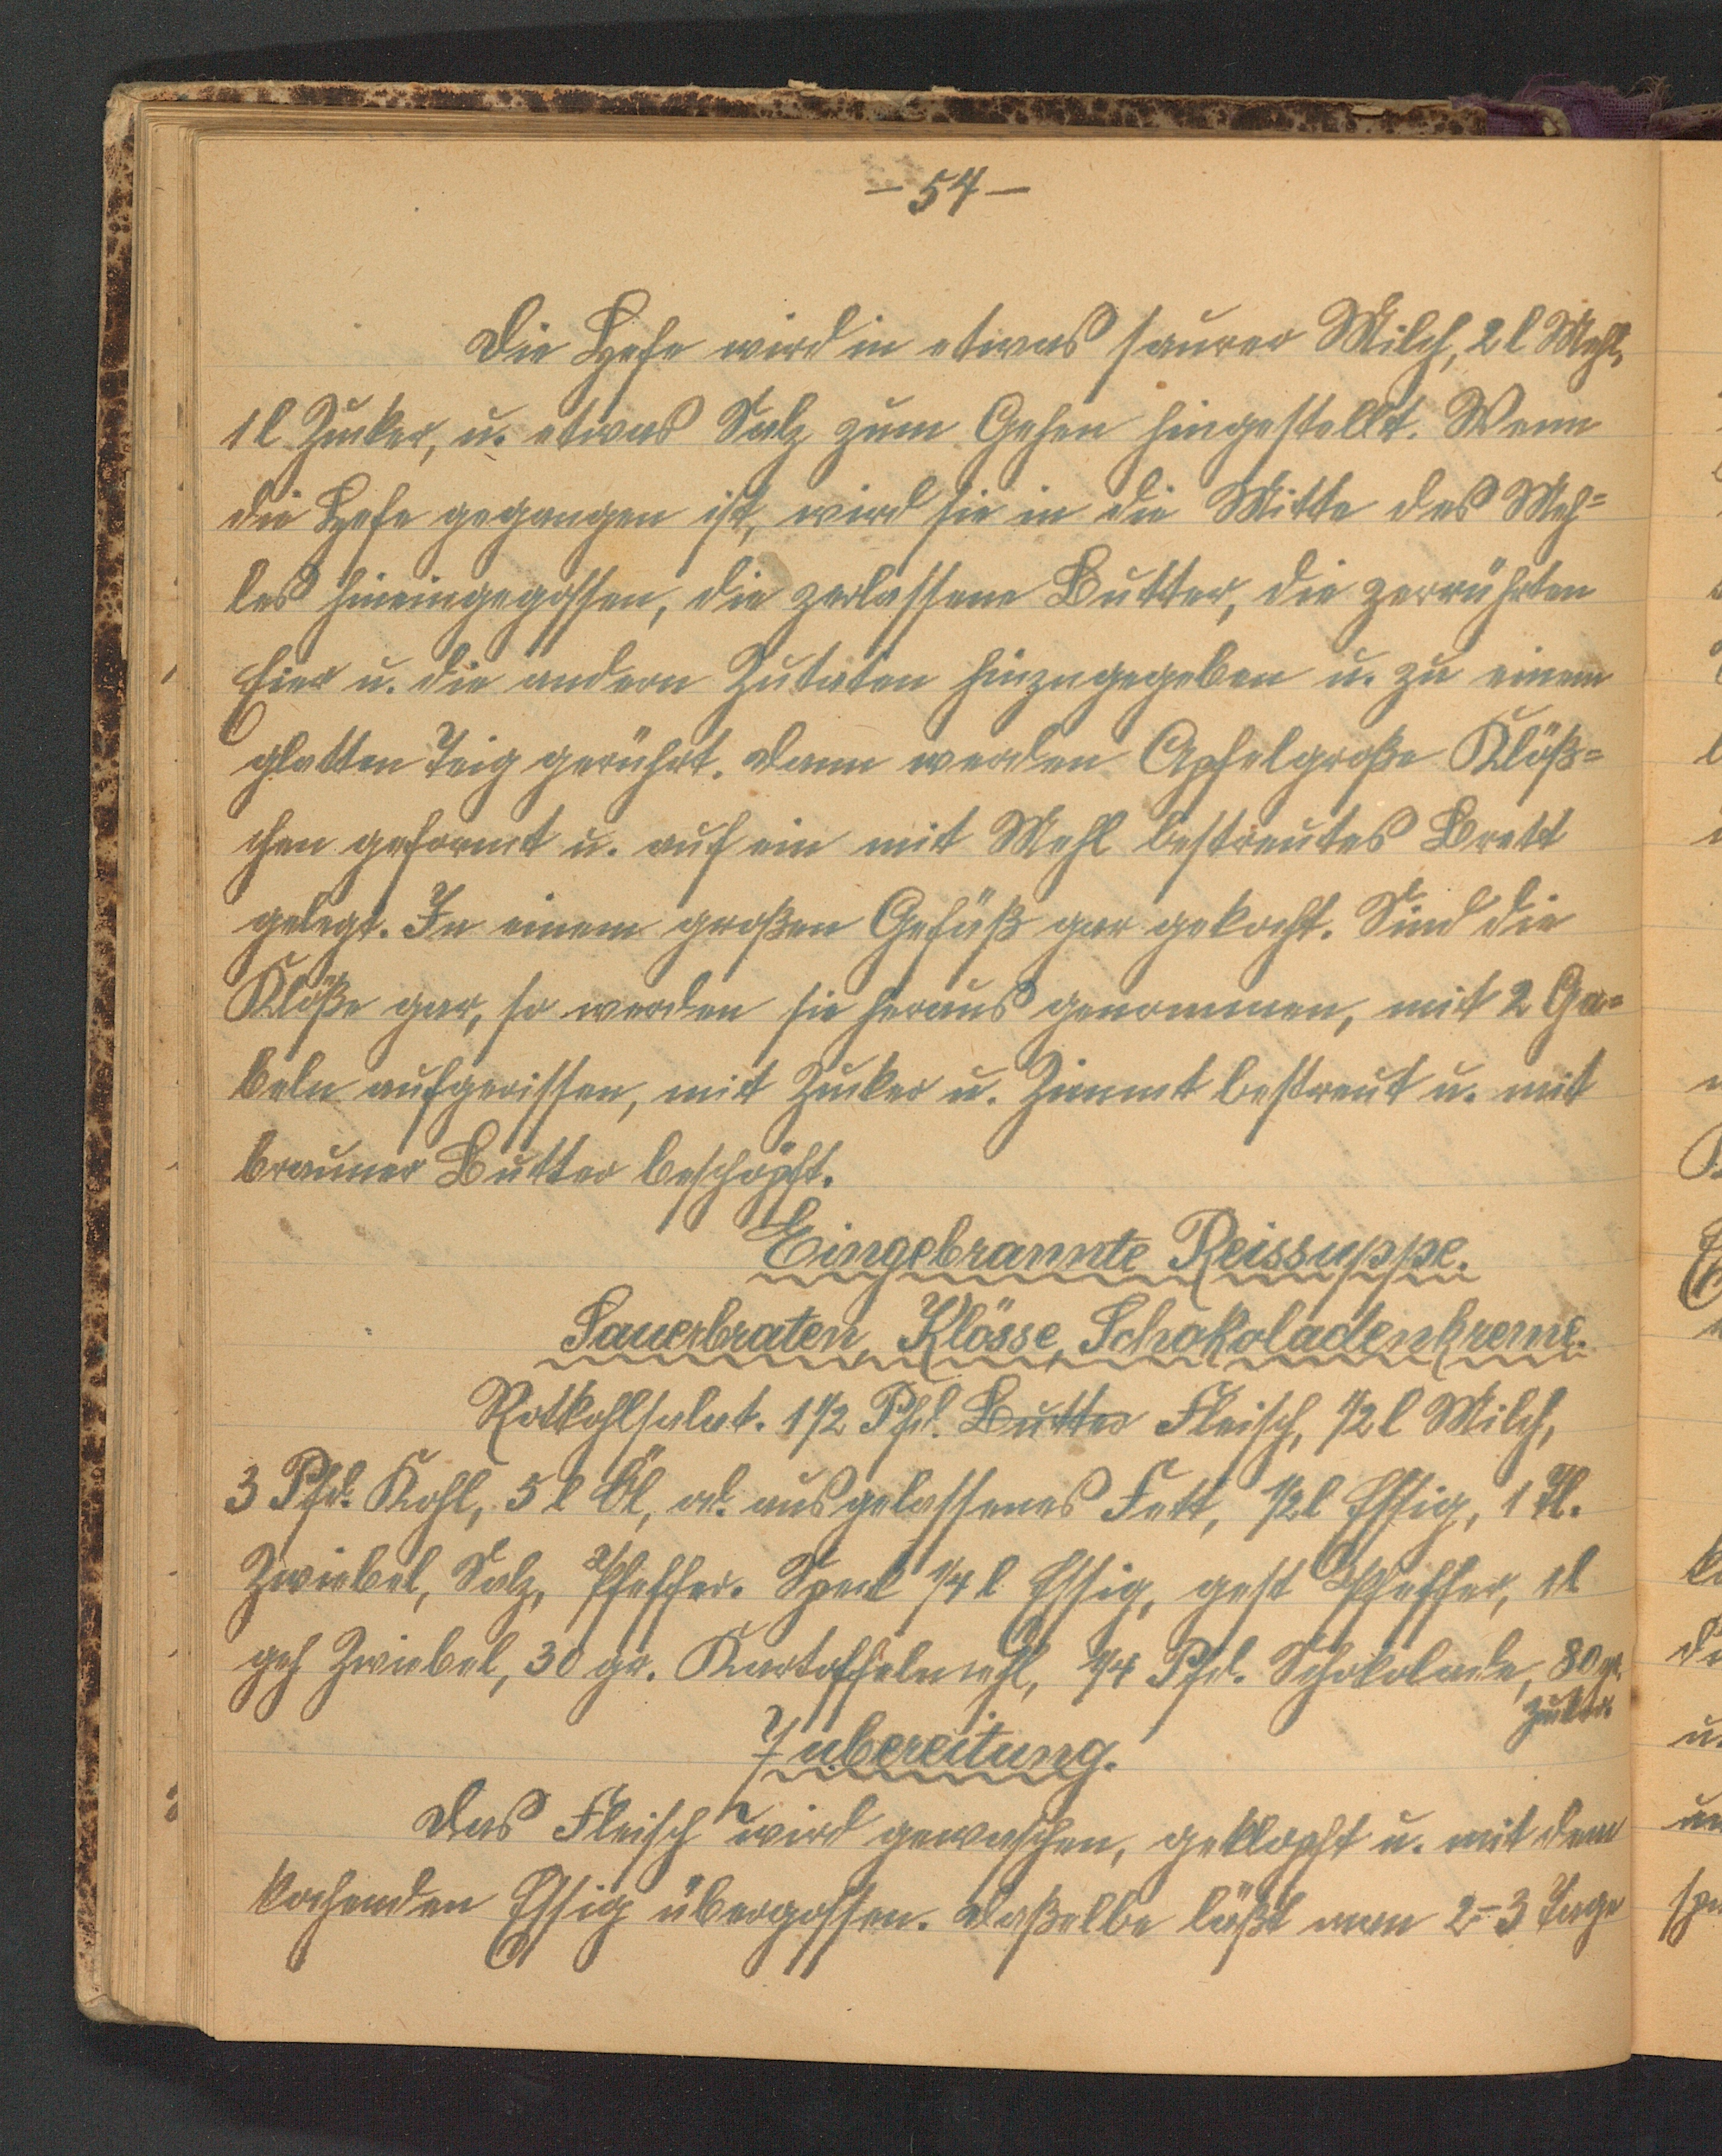 – 54 –
Die Hefe wird in etwas saurer Milch, 2 l Mehl,
1 l Zucker, u. etwas Salz zum Gehen hingestellt. Wenn
die Hefe gegangen ist, wird sie in die Mitte des Meh=
les hineingegossen, die zerlassene Butter, die zerrührten
Eier u. die andern Zutaten hinzugegeben u. zu einem
glatten Teig gerührt. Dann werden Apfelgroße Klöß=
chen geformt u. auf ein mit Mehl bestreutes Brett
gelegt. In einem großen Gefäß gar gekocht. Sind die
Klöße gar, so werden sie heraus genommen, mit 2 Ga=
beln aufgerissen, mit Zucker u. Zimmt bestreut u. mit
brauner Butter beschöpft.
Eingebrannte Reissuppe.
Sauerbraten, Klösse, Schokoladenkreme.
Rotkohlsalat. 1 1/2 Pfd. Butter Fleisch, 1/2 l Milch,
3 Pfd. Kohl, 5 l Öl, od. ausgelassenes Fett, 1/2 l Essig, 1 Tl.
Zwiebel, Salz, Pfeffer. Speck 1/4 l Essig, gest Pfeffer, 1 l
geh Zwiebel, 30 gr. Kartoffelmehl, 1/4 Pfd. Schokolade, 80 gr.
Zucker.
Zubereitung.
Das Fleisch wird gewaschen, geklopft u. mit dem
kochenden Essig übergossen. Daßelbe läßt man 2–3 Tage